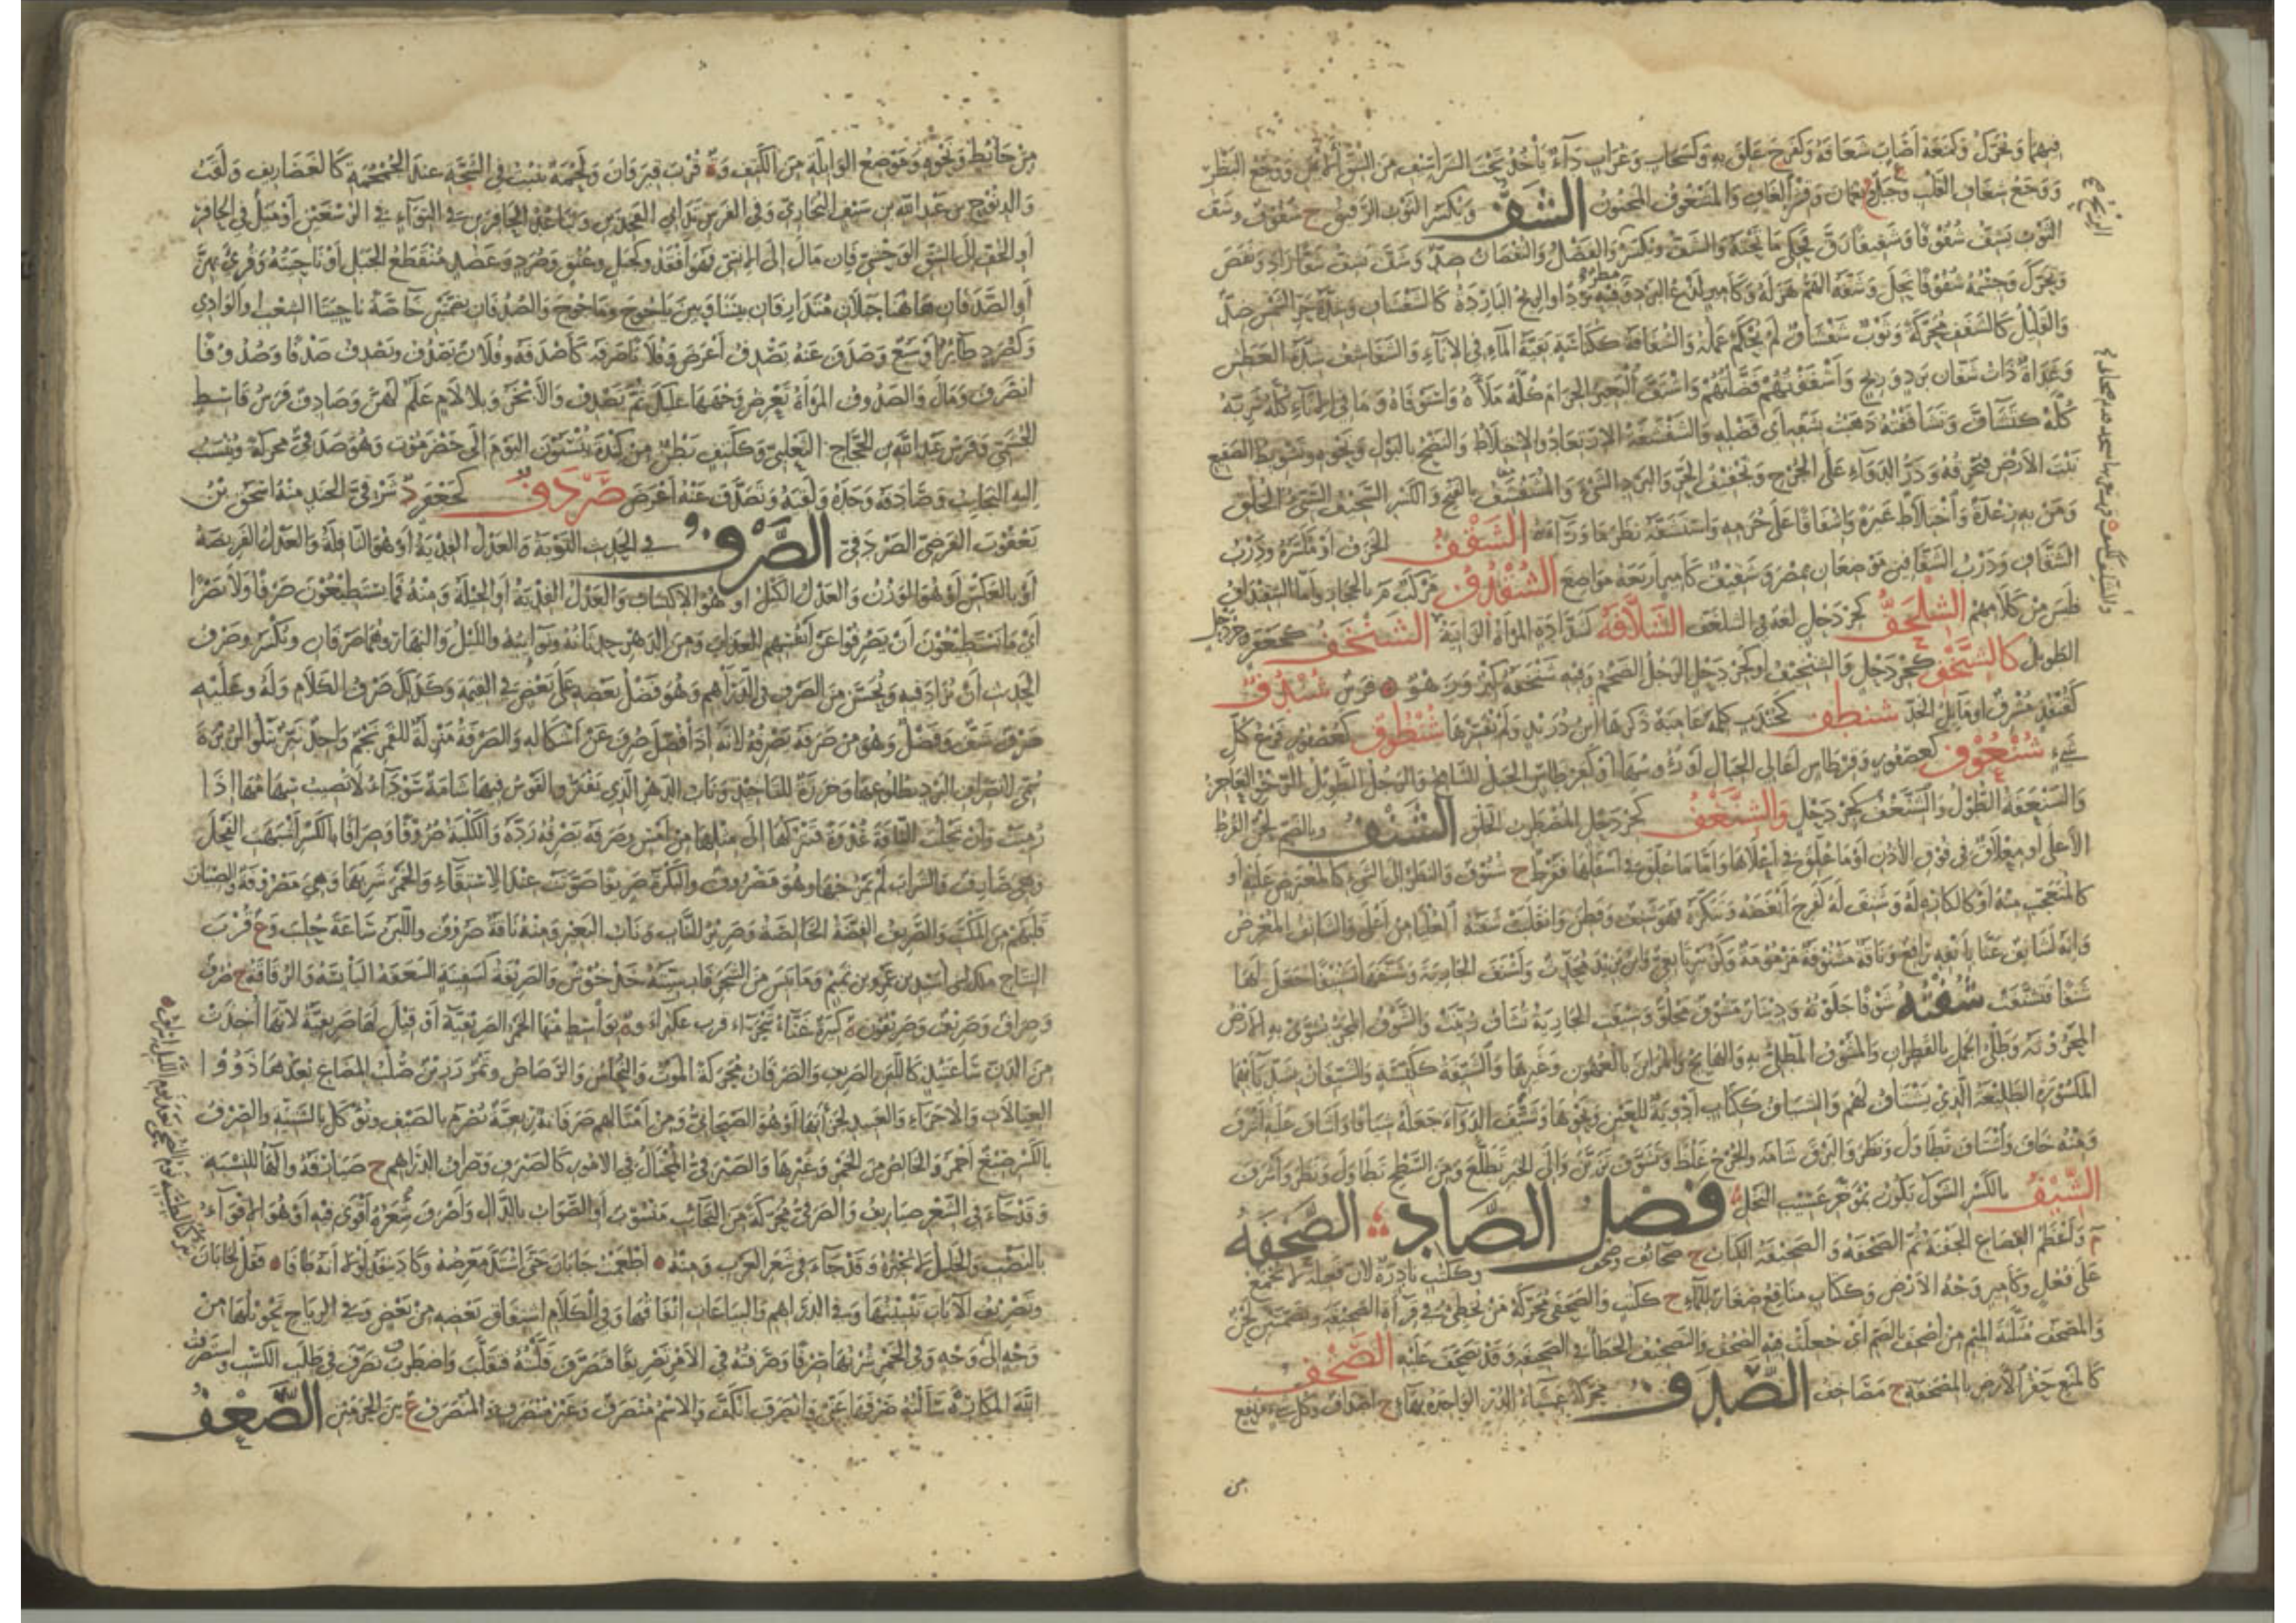 فيهما ويحرك وكمنعه أصاب شغافه وكفرح علق به وكسحاب وغراب داء يأخذ تحت الشراسيف من الشق الأيمن ووجع البطن
ووجع شغاف القلب وجبل بعمان وقشر الغاف والمشغوف المجنون الشف ويكسر الثوب الرقيق ج شفوف وشف
الثوب يشف شفوفا وشفيفا رق فحكى ما تحته والشف ويكسر والفضل والنقصان ضد وشف يشف شفا زاد ونقص
ويحرك وجسمه شفوفا نحل وشفه الهم هزله وكأمير لذع البرد ومطر فيه برد أو الريح الباردة كالشفان وشدة حر الشمس ضد
والقليل كالشفف محركة وثوب شفشاف لم يحكم عمله والشفافة ككناسة بقية الماء في الإناء والشفاشف شدة العطش
وغداة ذات شفان برد وريح وأشففتهم فضلتهم واشتف البعير الحزام كله ملأه واستوفاه وما في الإناء كله شربه
كله كتشاف وتشاففته ذهبت بشفه أي فضله والشفشفة الارتعاد والاختلاط والنضح بالبول ونحوه وتشويط الصقيع
نبت الأرض فيحرقه وذر الدواء على الجرح وتجفيف الحر والبرد الشيء والمشفشف بالفتح والكسر السخيف السيئ الخلق
ومن به رعدة واختلاط غيرة وإشفاقا على حرمه واستشفه نظر ما وراءه الشقف الخزف أو مكسره ودرب
الشقاف ودرب الشقافين موضعان بمصر وشقيف كأمير أربعة مواضع الشقدف مركب م بالحجاز وأما الشقنداف
فليس من كلامهم الشلخف كجردحل لغة في السلغف الشلافة كشدادة المرأة الزانية الشنخف كجعفر وجردحل
الطويل كالشنخف كجردحل والشنخيف أو كجردحل الرجل الضخم وفيه شنخفة كبر وزهو فرس شندف
كقنفذ مشرف أو مائل الخد شنطف كجندب كلمة عامية ذكرها ابن دريد ولم يفسرها شنطوف كعصفور فرع كل
شيء شنعوف كعصفور وقرطاس أعالي الجبال أو رءوسها أو كقرطاس الجبل الشامخ والرجل الطويل الرخو العاجز
والشنعفة الطول والشنعف كجردحل والشنغف كجردحل المضطرب الخلق الشنف وبالضم لحن القرط
الأعلى أو معلاق في قوف الأذن أو ما علق في أعلاها وأما ما علق في أسفلها فقرط ج شنوف والنظر إلى الشيء كالمعترض عليه أو
كالمتعجب منه أو كالكاره له وشنف له كفرح أبغضه وتنكره فهو شنف وفطن وانقلبت شفته العليا من أعلى والشانف المعرض
وإنه لشانف عنا بأنفه رافع وناقة مشنوفة مزمومة وكزبير تابعي وابن يزيد محدث وأشنف الجارية وشنفها تشنيفا جعل لها
شنفا فتشنفت شفته شوفا جلوته ودينار مشوف مجلو وشيفت الجارية تشاف زينت والشوف المجر تسوى به الأرض
المحروثة وطلي الجمل بالقطران والمشوف المطلي به والهائج والمزين بالعهون وغيرها والشيفة ككيسة والشيفان بشد يائهما
المكسورة الطليعة الذي يشتاف لهم والشياف ككتاب أدوية للعين ونحوها وشيف الدواء جعله شيافا وأشاف عليه أشرف
ومنه خاف واشتاف تطاول ونظر والبرق شامه والجرح غلظ وتشوف تزين وإلى الخبر تطلع ومن السطح تطاول ونظر وأشرف
الشيف بالكسر الشوك يكون بمؤخر عسيب النخل فصل الصاد الصحفة
م وأعظم القصاع الجفنة ثم الصحفة والصحيفة الكتاب ج صحائف وصحف وككتب نادرة لأن فعيلة لا تجمع
على فعل وكأمير وجه الأرض وككتاب مناقع صغار للماء ج ككتب والصحفي محركة من يخطئ في قراءة الصحيفة وبضمتين لحن
والمصحف مثلثة الميم من أصحف بالضم أي جعلت فيه الصحف والتصحيف الخطأ في الصحيفة وقد تصحف عليه الصخف
كالمنع حفر الأرض بالمصخفة ج مصاخف الصدف محركة غشاء الدر الواحدة بهاء ج أصداف وكل شيء مرتفع
من
من حائط ونحوه وموضع الوابلة من الكتف وة قرب قيروان ولحمة تنبت في الشجة عند الجمجمة كالغضاريف ولقب
والد نوح بن عبد الله بن سيف البخاري وفي الفرس تداني الفخذين وتباعد الحافرين في التواء في الرسغين أو ميل في الحافر
أو الخف إلى الشق الوحشي فإن مال إلى الإنسي فهو أقفد وكجبل وعنق وصرد وعضد منقطع الجبل أو ناحيته وقرئ بهن
أو الصدفان هاهنا جبلان متلازقان بيننا وبين يأجوج ومأجوج والصدفان بضمتين خاصة ناحيتا الشعب أو الوادي
وكصرد طائر أو سبع وصدف عنه يصدف أعرض وفلانا صرفه كأصدفه وفلان يصدف ويصدف صدفا وصدوفا
انصرف ومال والصدوف المرأة تعرض وجهها عليك ثم تصدف والأبخر وبلا لام علم لهن وصادف فرس قاسط
الجشمي وفرس عبد الله بن الحجاج الثعلبي وككتف بطن من كندة ينسبون اليوم إلى حضرموت وهو صدفي محركة وتنسب
إليه النجائب وصادفه وجده ولقيه وتصدف عنه أعرض صردف كجعفر د شرقي الجند منه إسحق بن
يعقوب الفرضي الصردفي الصرف في الحديث التوبة والعدل الفدية أو هو النافلة والعدل الفريضة
أو بالعكس أو هو الوزن والعدل الكيل أو هو الاكتساب والعدل الفدية أو الحيلة ومنه فما يستطيعون صرفا ولا نصرا
أي ما يستطيعون أن يصرفوا عن أنفسهم العذاب ومن الدهر حدثانه ونوائبه والليل والنهار وهما صرفان ويكسر وصرف
الحديث أن يزاد فيه ويحسن من الصرف في الدراهم وهو فضل بعضه على بعض في القيمة وكذلك صرف الكلام وله وعليه
صرف شف وفضل وهو من صرفه يصرفه لأنه إذا فضل صرف عن أشكاله والصرفة منزلة للقمر نجم واحد نير يتلو الزبرة
سمي لانصراف البرد بطلوعها وخرزة للتأخيذ وناب الدهر الذي يفتر والقوس فيها شامة سوداء لا تصيب سهامها إذا
رميت وأن تحلب الناقة غدوة فتتركها إلى مثلها من أمس وصرفه يصرفه رده والكلبة صروفا وصرافا بالكسر اشتهت الفحل
وهي صارف والشراب لم يمزجها وهو مصروف والبكرة صريفا صوتت عند الاستقاء والخمر شربها وهي مصروفة والصبيان
قلبهم من المكتب والصريف الفضة الخالصة وصرير الناب وناب البعير ومنه ناقة صروف واللبن ساعة حلب وع قرب
النباج ملك لبني أسيد بن عمرو بن تميم وما يبس من الشجر والصريفة كسفينة السعفة اليابسة والرقاقة ج صرف
وصراف وصريف وصريفون ة كبيرة غناء شجراء قرب عكبراء وة بواسط منها الخمر الصريفية أو قيل لها صريفية لأنها أخذت
من الدن ساعتئذ كاللبن الصريف والصرفان محركة الموت والنحاس والرصاص وتمر رزين صلب المضاغ يعدها ذوو
العيالات والأجراء والعبيد لجزائها أو هو الصيحاني ومن أمثالهم صرفانة ربعية تصرم بالصيف وتؤكل بالشتية والصرف
بالكسر صبغ أحمر والخالص من الخمر وغيرها والصيرفي المحتال في الأمور كالصيرف وصراف الدراهم ج صيارفة والهاء للنسبة
وقد جاء في الشعر صياريف والصرفي محركة من النجائب منسوب أو الصواب بالدال وأصرف شعره أقوى فيه أو هو الإقواء
بالنصب والخليل لا يجيزه وقد جاء في شعر العرب ومنه أطعمت جابان حتى اشتد مغرضه وكاد ينقد لولا أنه طافا فقل لجابان
وتصريف الآيات تبيينها وفي الدراهم والبياعات إنفاقها وفي الكلام اشتقاق بعضه من بعض وفي الرياح تحويلها من
وجه إلى وجه وفي الخمر شربها صرفا وصرفته في الأمر تصريفا فتصرف قلبته فتقلب واصطرف تصرف في طلب الكسب واستصرفت
الله المكاره سألته صرفها عني وانصرف انكف والاسم منصرف وغير منصرف والمنصرف ع بين الحرمين الصعف